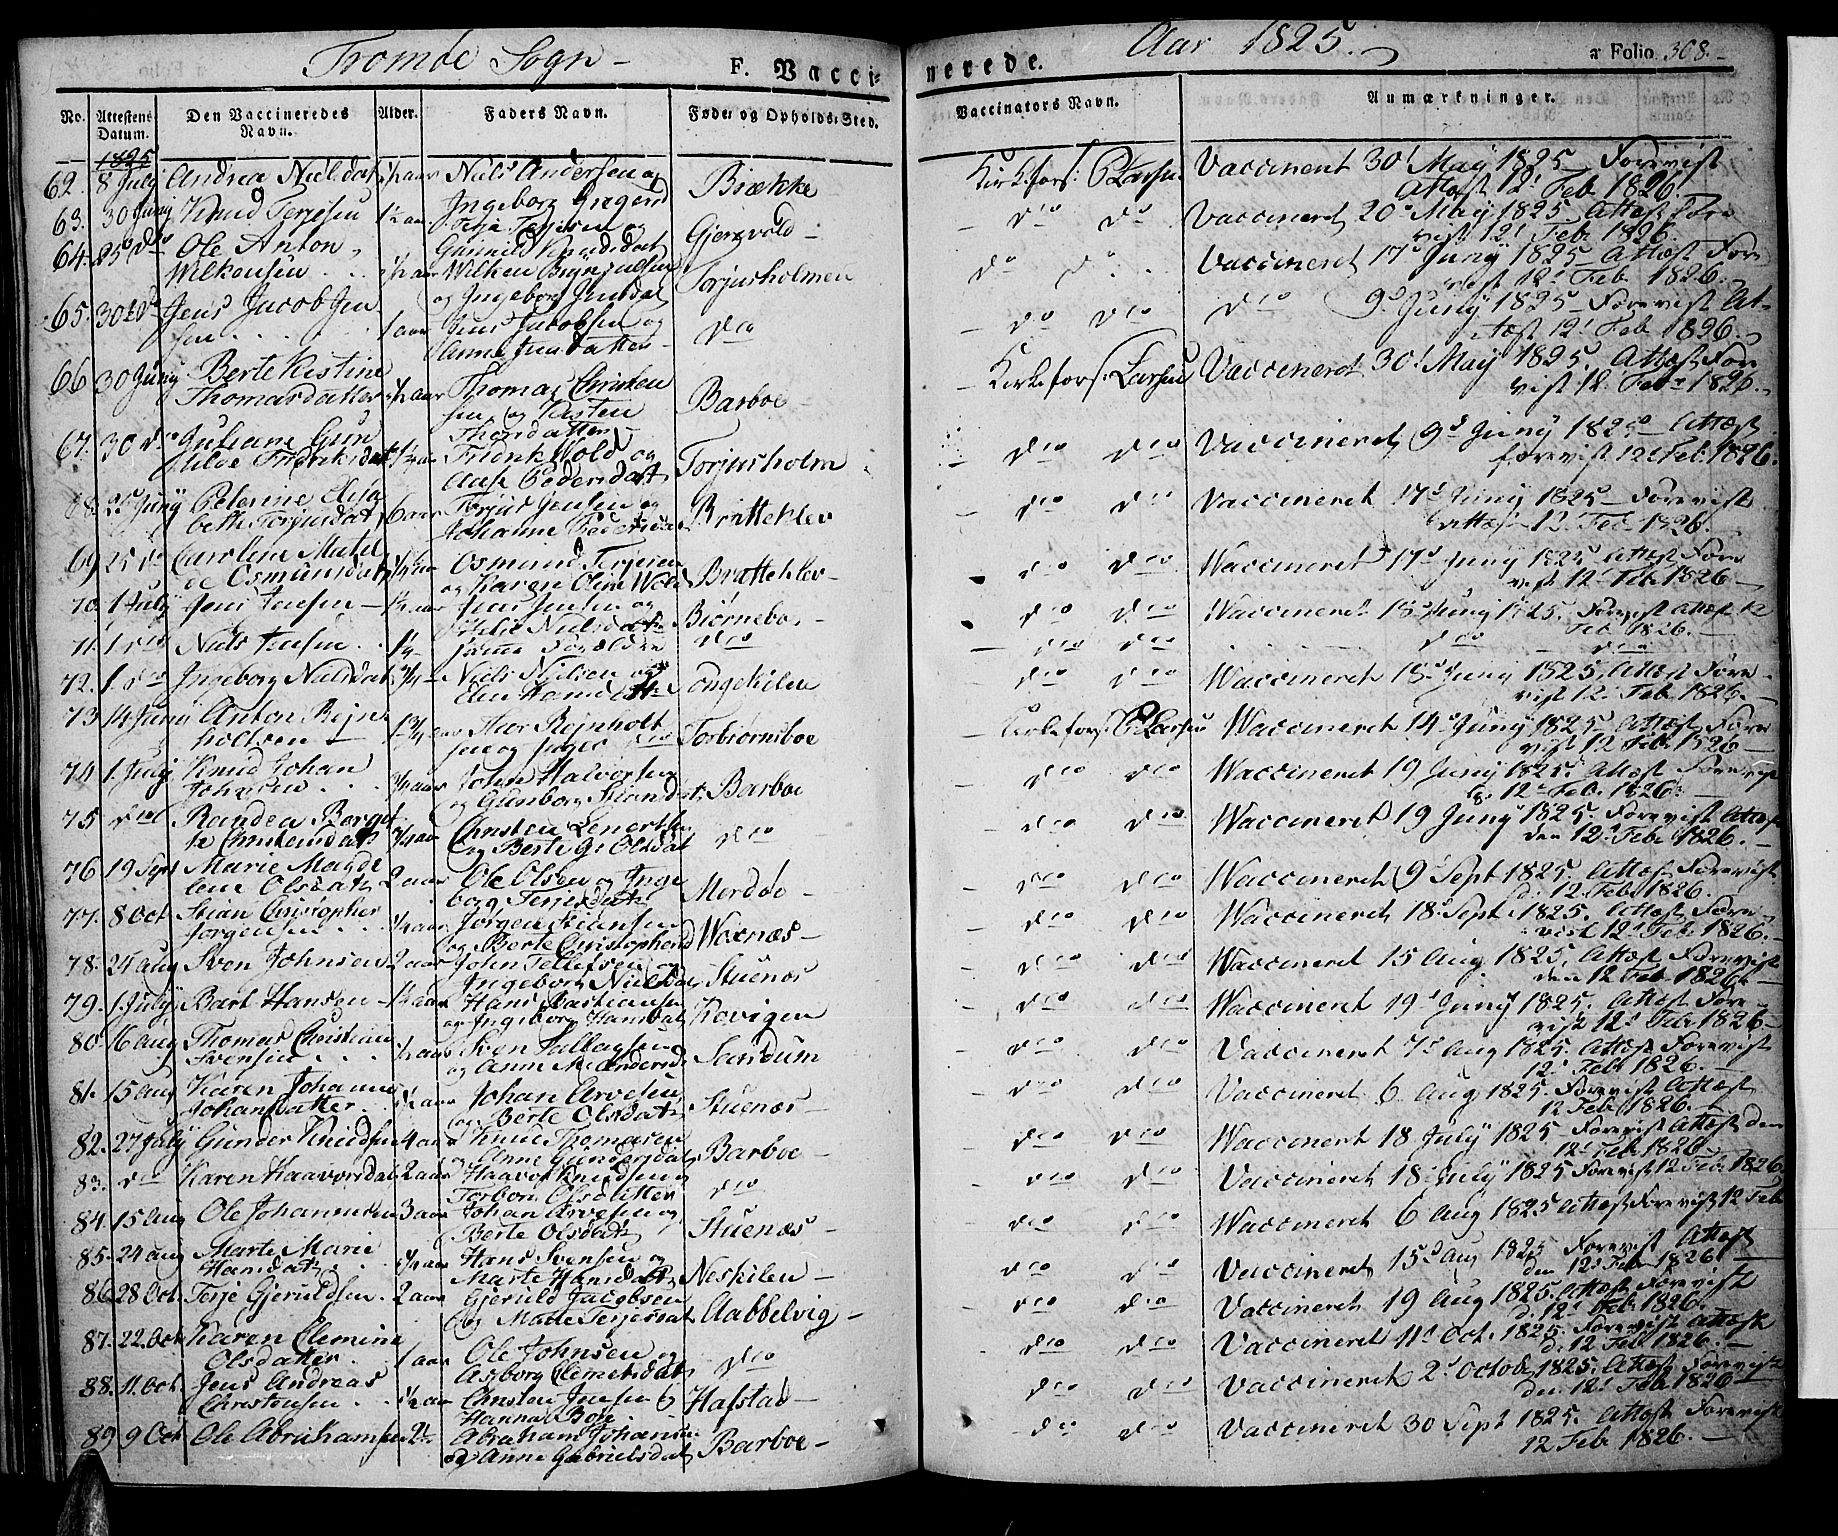 Tromöe Sogn – F. Vacci- nerede. Aar 1825. a Folio 308.
No. Attestens Datum. Den Vaccineredes Navn. Alder. Faders Navn. Føde- og Opholds-Sted. Vaccinators Navn. Anmærkninger.
1825
62. 8 July Andrea Nielsdat ½ aar Niels Andersen og Ingeborg Brække Kirkefors: Larsen Vaccineret 30 May 1825 Forevist
Attest 12 Feb 1826
63. 30 Juny Knud Terjesen 1½ aar Terje Terjesen og Gunild Knudsdat Gjersvold – do do Vaccineret 20 May 1825 Attest Fore
vist 12 Feb 1826
64. 25 do Ole Anton Wilkensen ½ aar Wilken Brynjulfsen og Ingeborg Jensdat Torjusholmen do do Vaccineret 17 Juny 1825 Attest Fore
vist 12 Feb 1826.
65. 30 do Jens Jacob Jensen 1 aar Jens Jacobsen og Anne Jensdatter – do – do do do 9 Juny 1825 – Forevist At-
test 12 Feb 1826 –
66 30 Juny Berte Kistine Thomasdatter ½ aar Thomas Christensen og Kisten Thorsdatter Barboe – – Kirkefors: Larsen Vaccineret 30 May 1825. Attest Fore
vist 12 Feb 1826.
67. 30 do Juliane Gunhilde Fredriksdat ¼ aar Fridrik Wold og Aase Pedersdat Torjusholm – do do Vaccineret 9 Juny 1825 – Attest
forevist 12 Feb. 1826.
68. 25 Juny Peterine Elisabeth Torjusdat 6 aar Torjus Jensen og Johanne Bratteklev do do Vaccineret 17 Juny 1825 Forevist
Attest 12 Feb 1826.
69 25 do Caroline Matilde Osmundsdat ¼ aar Osmund Terjesen og Karen Oline Wold Bratteklev – do do Vaccineret 17 Juny 1825 Attest Fore
vist 12 Feb 1826 –
70. 1 July Jens Jensen – 1½ aar Jens Jensen og Nielsdat Biørneboe – do do Vaccineret 18 Juny 1825. Forevist Attest 12
Feb 1826. –
71. 1 do Niels Jensen 1½ – samme Forældre do – do do do – do
72. 1 do Ingeborg Nielsdat ¾ – Niels Nielsen og Songekilen do do Vaccineret 18 Juny 1825, Attest Fore
vist 12 Feb 1826. –
73 14 Juny Anton Rejnholtsen – 1¾ aar Thor Rejnholtsen og Inger Torbiørnsboe – Kirkefors: Larsen Vaccineret 14 Juny 1825 Attest Fore
vist 12 Feb 1826 –
74 1. July Knud Johan Johnsen ½ aar John Halvorsen og Gunborg Stiansdat Barboe do do Vaccineret 19 Juny 1825. Attest Forevist
12 Feb. 1826.
75 do Randea Borgitte Christensdat ½ aar Christen Lenertsen og Berte G. Olsdat do do do Vaccineret 19 Juny 1825. Forevist Attest
den 12 Feb 1826. –
76 19 Sept Marie Magdelene Olsdat 2 aar Ole Olsen og Ingeborg Terjesdat Merdøe – do do Vaccineret 9 Sept 1825. Attest Forevist
d. 12 Feb 1826. –
77. 8 Oct Stian Christopher Jørgensen ½ aar Jørgen Stiansen og Berte Christophersd Waxnæs – do do Vaccineret 18 Sept 1825. Attest Fore
vist 12 Feb 1826. –
78. 24 aug Sven Johnsen 2 aar John Tellefsen og Ingeborg Nielsdat Stuenæs – do do Vaccineret 15 Aug 1825. Attest Forevist
den 12 Feb 1826. –
79. 1. July Bart Hansen – 1½ aar Hans Bastiansen og Ingeborg Hansdat Kovigen do do Vaccineret 19 Juny 1825. Attest Fore
vist 12 Feb 1826 –
80. 16 aug Thomas Christian Svensen ½ aar Sven Sallagsen og Anne M. Andersd Sandum – do do Vaccineret 7 Aug 1825. Attest Forevist
12 Feb 1826. –
81. 15 aug Karen Johanne Johansdatter ½ aar Johan Arvesen og Berte Olsdat Stuenæs – – do do Vaccineret 6 Aug 1825. Forevist Attest
12 Feb 1826. –
82. 27 July Gunder Knudsen 4 aar Knud Thomasen og Anne Gundersdat Barboe – – do do Vaccineret 18 July 1825 – Forevist Attest den
12 Feb 1826 –
83. do Karen Haavorsdat 2 aar Haavor Knudsen og Torbor Olsdatter do – do do Vaccineret 18 July 1825 Forevist 12 Feb 1826
84. 15 aug Ole Johansen 3 aar Johan Arvesen og Berte Olsdat Stuenæs – – do do Vaccineret 6 Aug 1825 Attest Forevist 12 Feb
85. 24 aug Marte Marie Hansdat ¼ aar Hans Svensen og Marte Hansdat Neskilen – – do do Vaccineret 15 Aug 1825 Forevist Attest
den 12 Feb 1826
86. 28 Oct. Terje Gjeruldsen – 2 aar Gjeruld Jacobsen og Marte Terjesdat Aabbelvig – – do do Vaccineret 19 Aug 1825. Attest Forevist
d. 12 Feb 1826. –
87. 22 Oct Karen Clemine Olsdatter. 1 aar Ole Johnsen og Asborg Clemetsdat do – do do Vaccineret 11 Oct. 1825. Forevist Attest
d. 12 Feb 1826. –
88. 11 Oct. Jens Andreas Christensen ½ aar Christen Jensen & Hanna Boe Hafstad – – do do Vaccineret 2 Octob 1825. Attest Forevist
den 12 Feb 1826 –
89 9 Oct Ole Abrahamsen 2 – Abraham Johansen og Anne Gabrielsdat Barboe – – do do Vaccineret 30 Sept 1825. Attest Forevist
12 Feb 1826. –